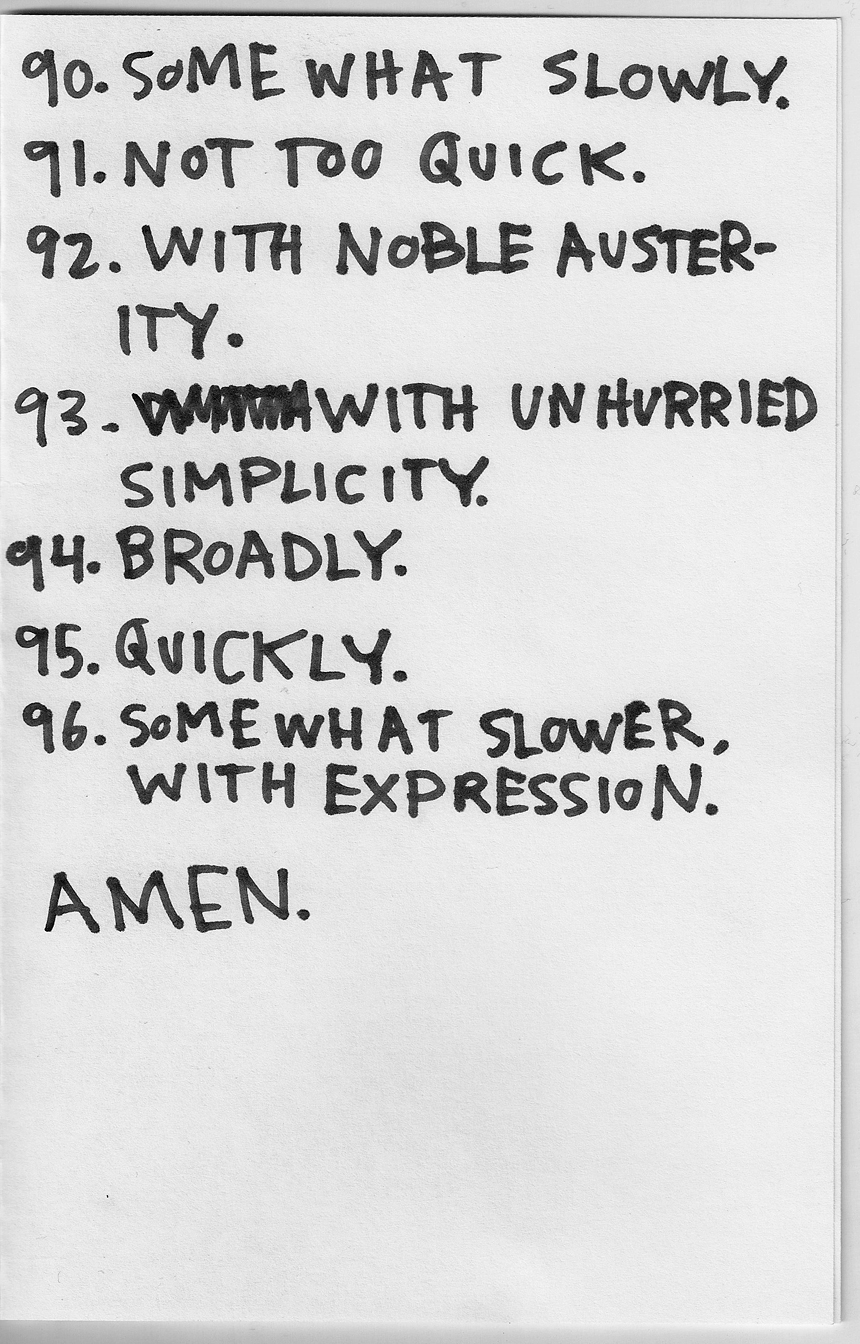 90. SOMEWHAT SLOWLY.
91. NOT TOO QUICK.
92. WITH NOBLE AUSTER-
ITY.
93. WITH UNHURRIED
SIMPLICITY.
94. BROADLY.
95. QUICKLY.
96. SOMEWHAT SLOWER,
WITH EXPRESSION.
AMEN.